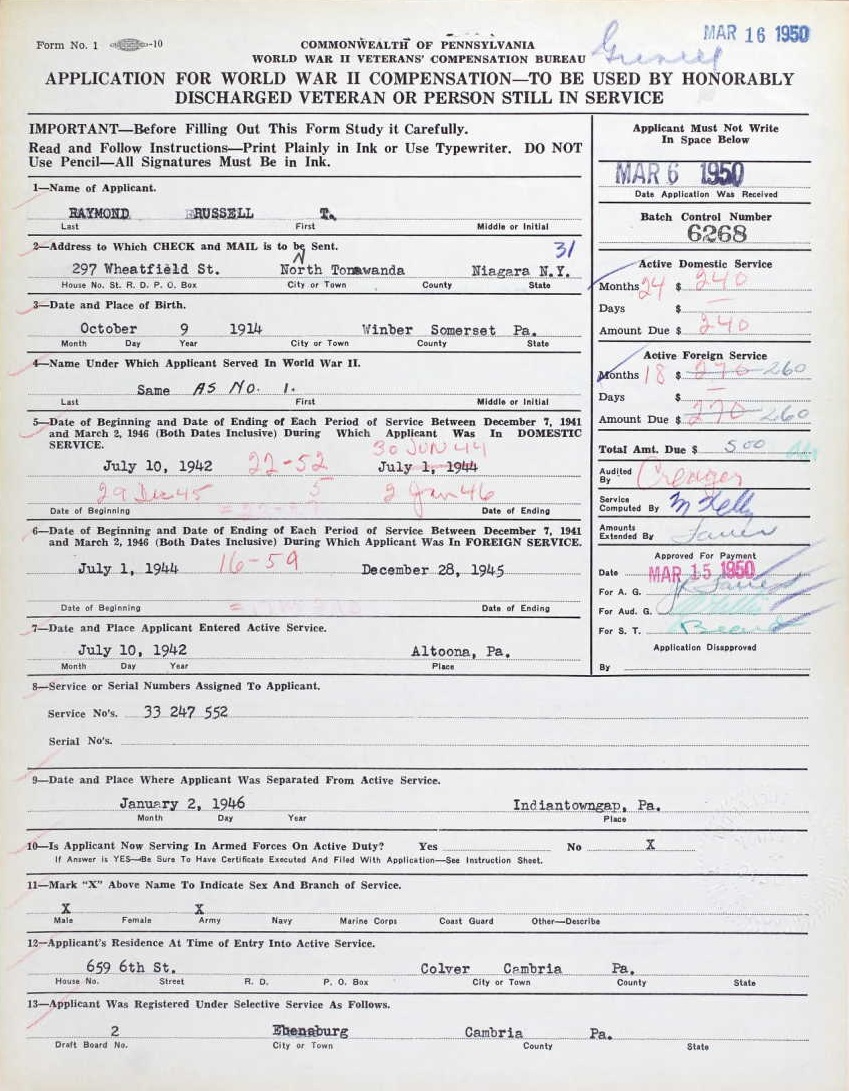 MAR 16 1950
Form No. 1 -10
COMMONWEALTH OF PENNSYLVANIA
WORLD WAR II VETERANS' COMPENSATION BUREAU
APPLICATION FOR WORLD WAR II COMPENSATION—TO BE USED BY HONORABLY
DISCHARGED VETERAN OR PERSON STILL IN SERVICE
IMPORTANT—Before Filling Out This Form Study it Carefully.
Read and Follow Instructions—Print Plainly in Ink or Use Typewriter. DO NOT
Use Pencil—All Signatures Must Be in Ink.
1—Name of Applicant.
RAYMOND RUSSELL T.
Last First Middle or Initial
2—Address to Which CHECK and MAIL is to be Sent.
31
297 Wheatfield St. North Tonawanda Niagara N.Y.
House No. St. R. D. P. O. Box City or Town County State
3—Date and Place of Birth.
October 9 1914 Winber Somerset Pa.
Month Day Year City or Town County State
4—Name Under Which Applicant Served In World War II.
Same AS NO. 1.
Last First Middle or Initial
5—Date of Beginning and Date of Ending of Each Period of Service Between December 7, 1941
and March 2, 1946 (Both Dates Inclusive) During Which Applicant Was In DOMESTIC
SERVICE.
30 JUN 44
July 10, 1942 22-52 July 1, 1944
29 Dec 45 5 2 Jan 46
Date of Beginning Date of Ending
6—Date of Beginning and Date of Ending of Each Period of Service Between December 7, 1941
and March 2, 1946 (Both Dates Inclusive) During Which Applicant Was In FOREIGN SERVICE.
July 1, 1944 16-59 December 28, 1945
Date of Beginning Date of Ending
7—Date and Place Applicant Entered Active Service.
July 10, 1942 Altoona, Pa.
Month Day Year Place
Applicant Must Not Write
In Space Below
MAR 6 1950
Date Application Was Received
Batch Control Number
6268
Active Domestic Service
Months 24 $ 240
Days $ —
Amount Due $ 240
Active Foreign Service
Months 18 $ 270 260
Days $ —
Amount Due $ 270 260
Total Amt. Due $ 500
Audited
By Creager
Service
Computed By M Kelly
Amounts
Extended By
Approved For Payment
Date MAR 15 1950
For A. G.
For Aud. G.
For S. T.
Application Disapproved
By
8—Service or Serial Numbers Assigned To Applicant.
Service No's. 33 247 552
Serial No's.
9—Date and Place Where Applicant Was Separated From Active Service.
January 2, 1946 Indiantowngap, Pa.
Month Day Year Place
10—Is Applicant Now Serving In Armed Forces On Active Duty? Yes No X
If Answer is YES—Be Sure To Have Certificate Executed And Filed With Application—See Instruction Sheet.
11—Mark "X" Above Name To Indicate Sex And Branch of Service.
X X
Male Female Army Navy Marine Corps Coast Guard Other—Describe
12—Applicant's Residence At Time of Entry Into Active Service.
659 6th St. Colver Cambria Pa.
House No. Street R. D. P. O. Box City or Town County State
13—Applicant Was Registered Under Selective Service As Follows.
2 Ebensburg Cambria Pa.
Draft Board No. City or Town County State